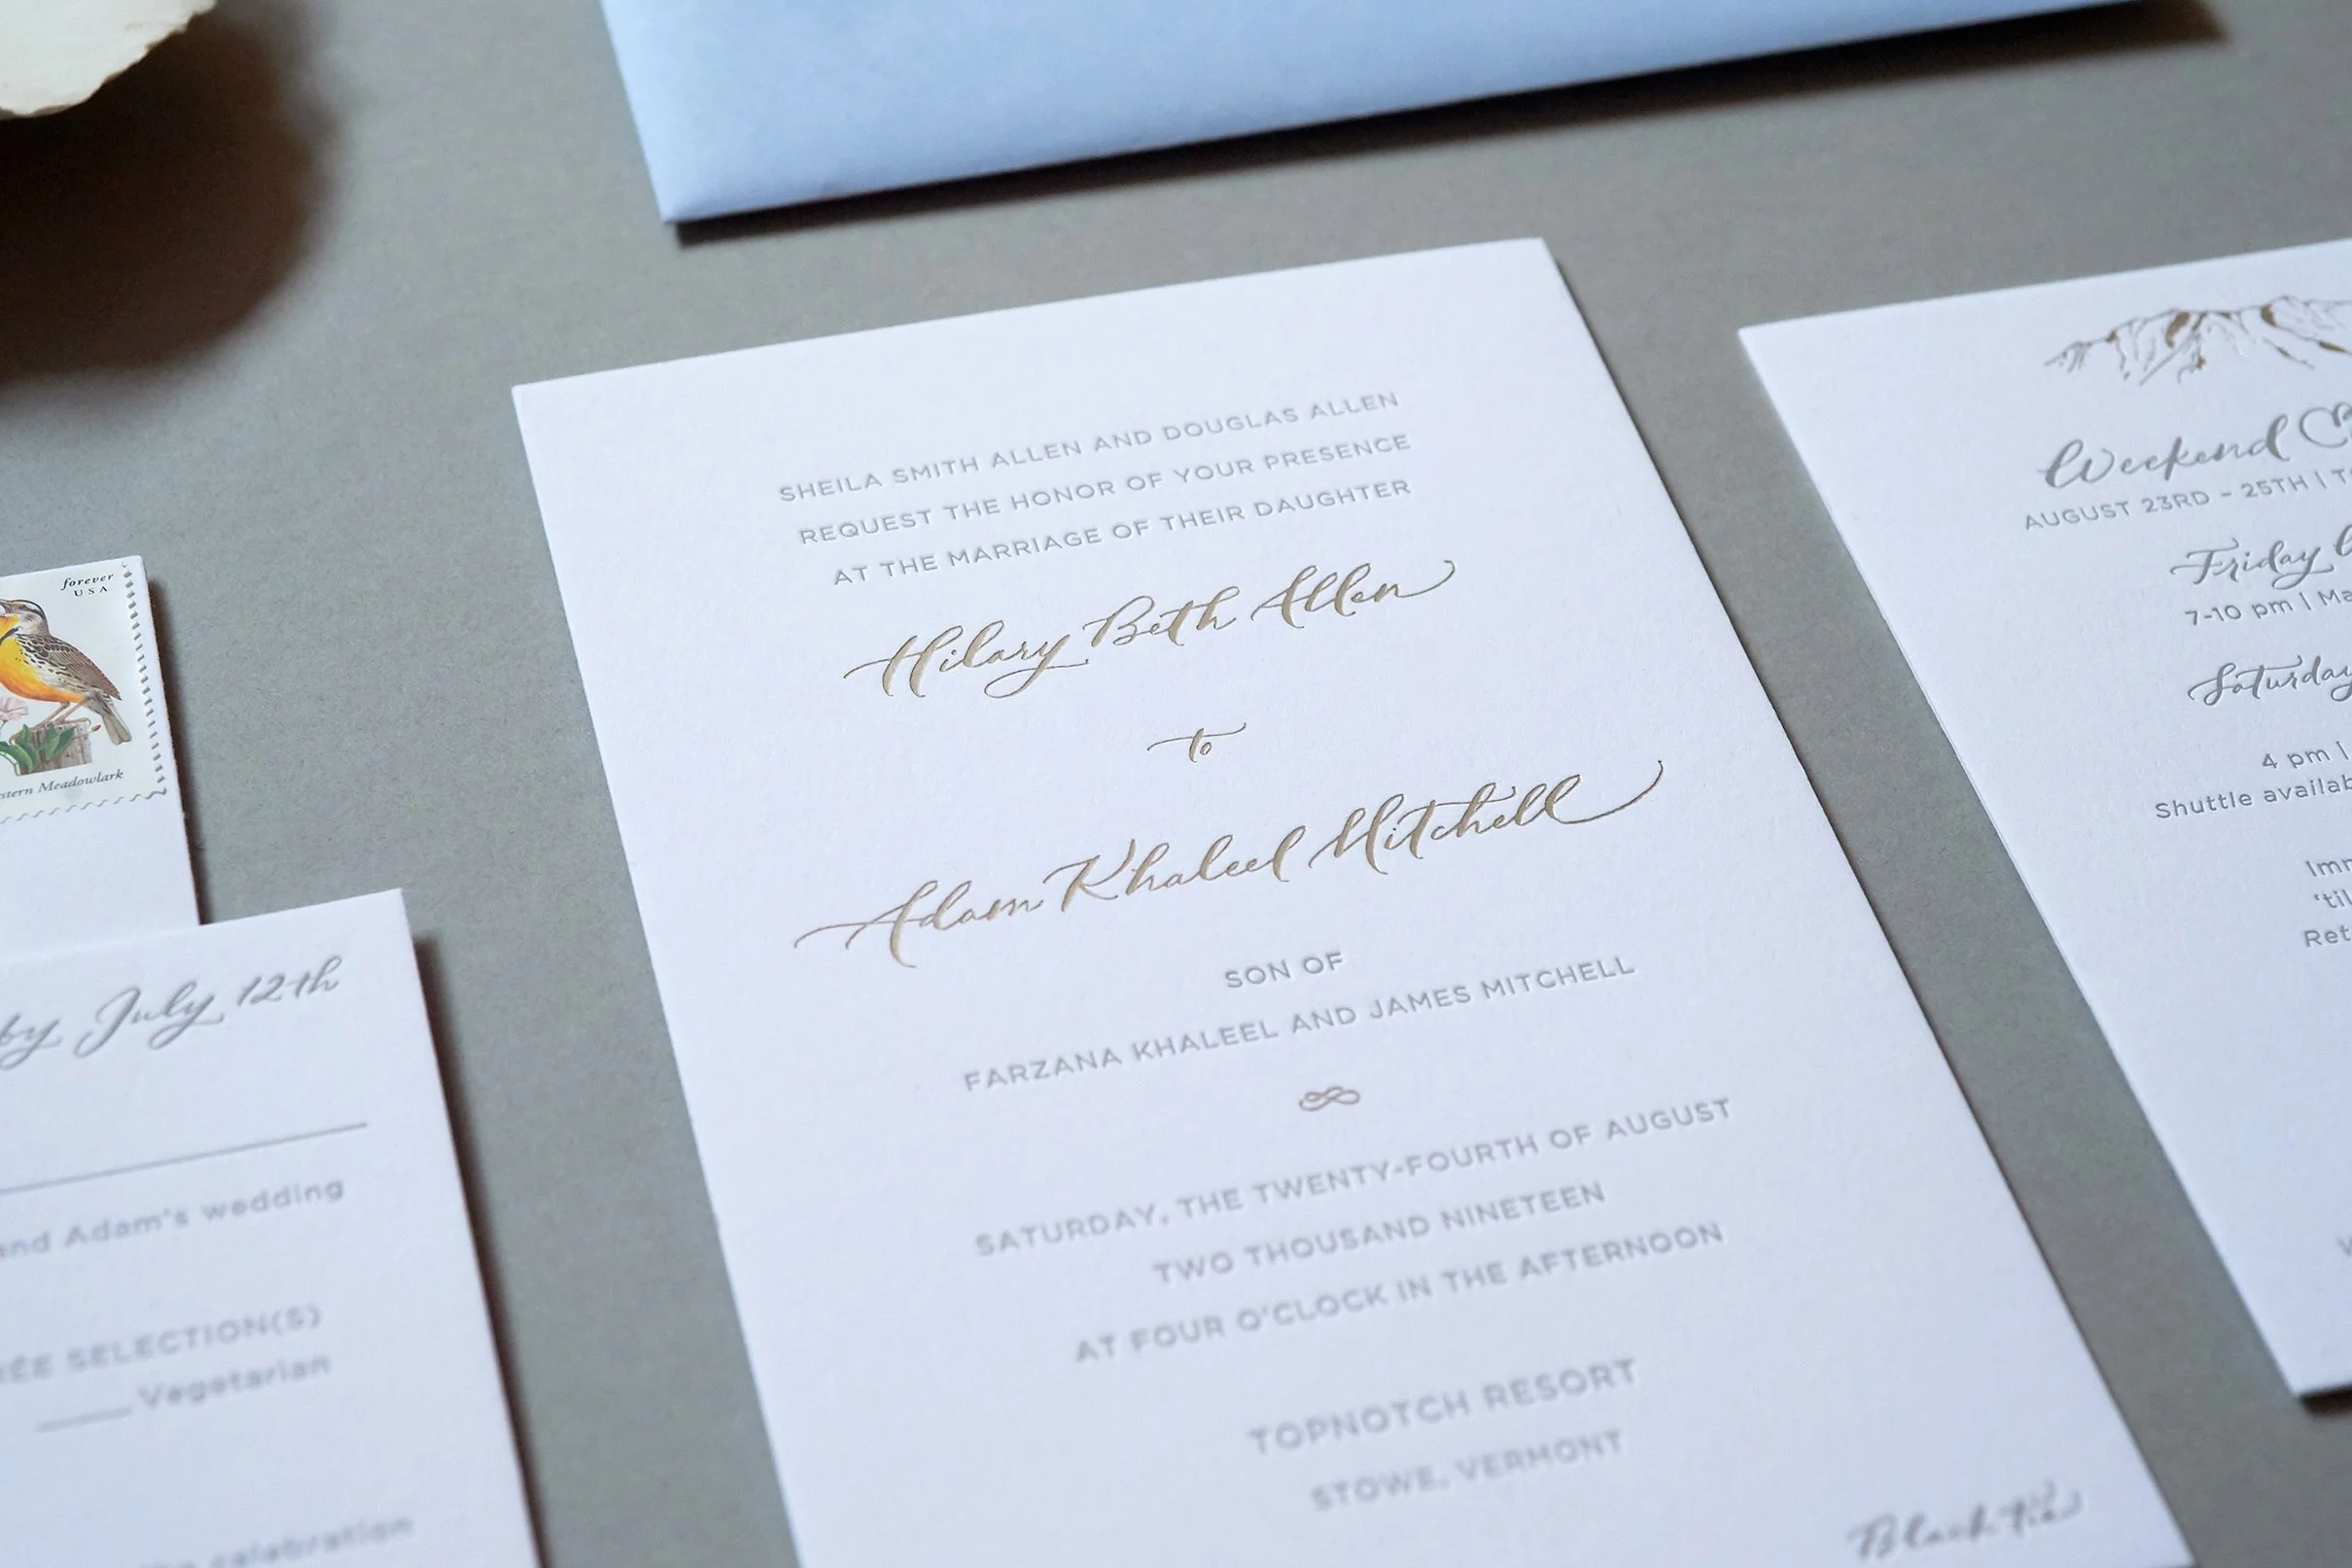 forever
USA
Meadowlark
by July 12th
and Adam's wedding
SELECTION(S)
Vegetarian
celebration
SHEILA SMITH ALLEN AND DOUGLAS ALLEN
REQUEST THE HONOR OF YOUR PRESENCE
AT THE MARRIAGE OF THEIR DAUGHTER
Hilary Beth Allen
to
Adam Khaleel Mitchell
SON OF
FARZANA KHALEEL AND JAMES MITCHELL
SATURDAY, THE TWENTY-FOURTH OF AUGUST
TWO THOUSAND NINETEEN
AT FOUR O'CLOCK IN THE AFTERNOON
TOPNOTCH RESORT
STOWE, VERMONT
Black tie
Weekend
AUGUST 23RD - 25TH |
Friday
7-10 pm |
Saturday
4 pm |
Shuttle
'til